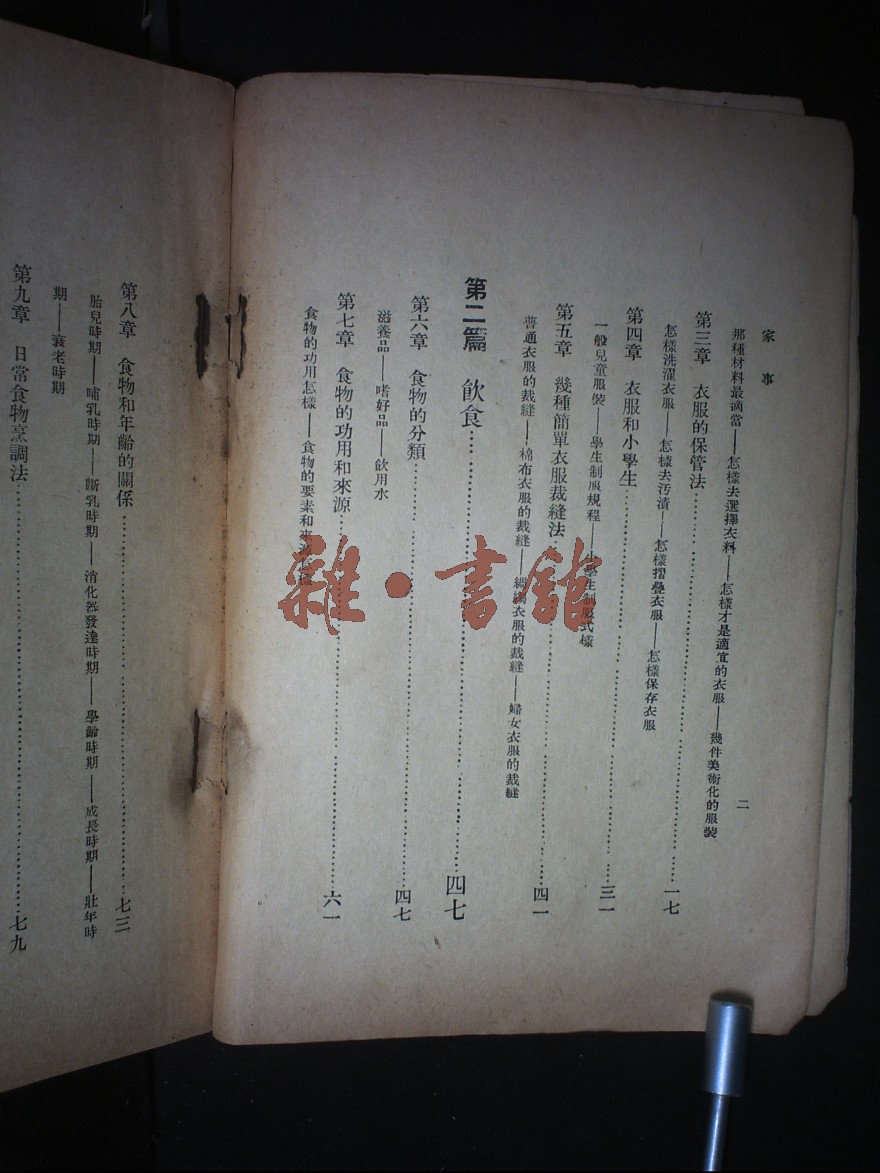 家事
二
那種材料最適當——怎樣去選擇衣料——怎樣才是適宜的衣服——幾件美術化的服裝
第三章 衣服的保管法……一七
怎樣洗濯衣服——怎樣去污漬——怎樣摺疊衣服——怎樣保存衣服
第四章 衣服和小學生……三一
一般兒童服裝——學生制服規程——小學生制服式樣
第五章 幾種簡單衣服裁縫法……四一
普通衣服的裁縫——棉布衣服的裁縫——綢綾衣服的裁縫——婦女衣服的裁縫
第二篇 飲食……四七
第六章 食物的分類……四七
滋養品——嗜好品——飲用水
第七章 食物的功用和來源……六一
食物的功用怎樣——食物的要素和來源怎樣
第八章 食物和年齡的關係……七三
胎兒時期——哺乳時期——斷乳時期——消化器發達時期——學齡時期——成長時期——壯年時
期——衰老時期
第九章 日常食物烹調法……七九
雜·書館